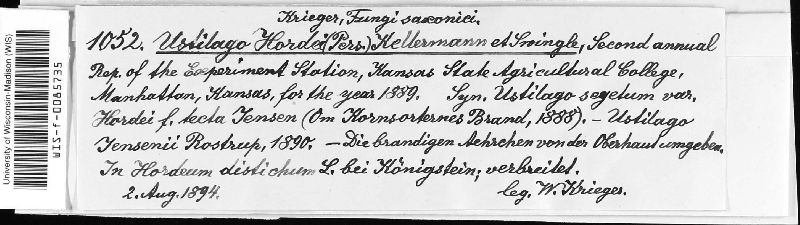 University of Wisconsin-Madison (WIS)
WIS-f-0085735
Krieger, Fungi saxonici.
1052. Ustilago Hordei (Pers.) Kellermann et Swingle, Second annual
Rep. of the Experiment Station, Kansas State Agricultural College,
Manhattan, Kansas, for the year 1889. Syn. Ustilago segetum var.
Hordei f. tecta Jensen (Om Kornsorternes Brand, 1888). – Ustilago
Jensenii Rostrup, 1890. – Die brandigen Aehrchen von der Oberhaut umgeben.
In Hordeum distichum L. bei Königstein; verbreitet.
2. Aug. 1894. leg. W. Krieger.